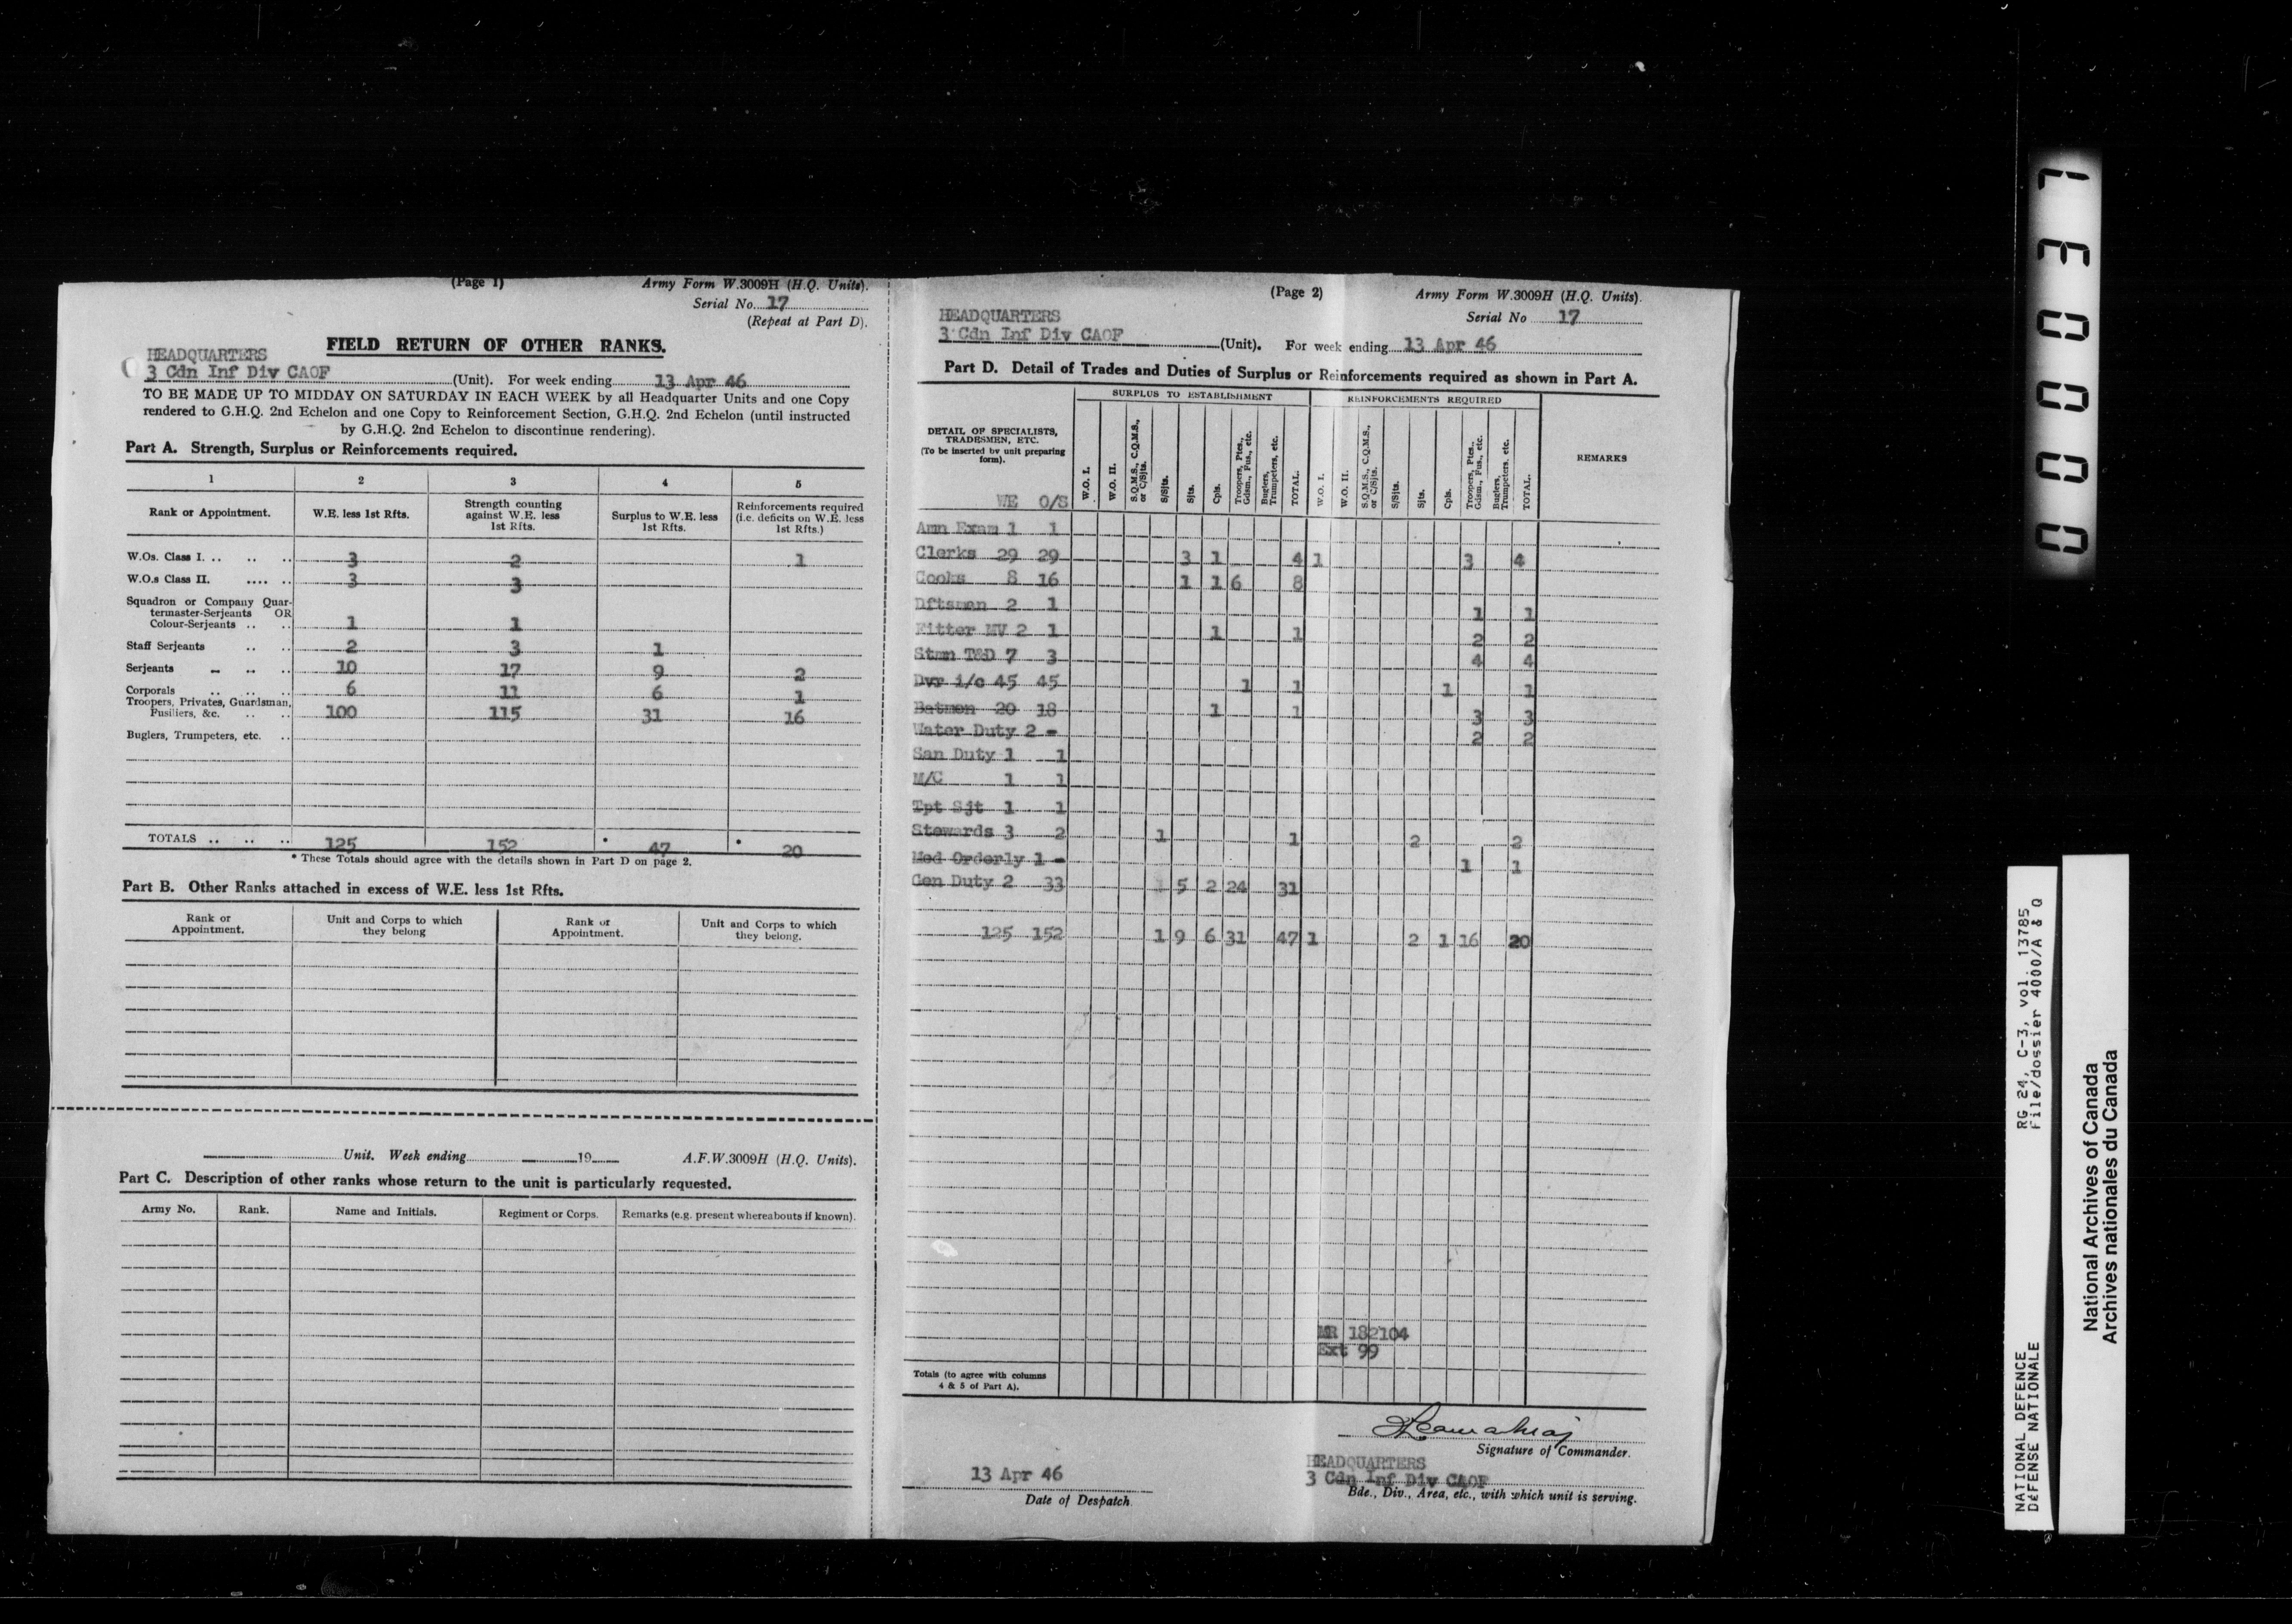 (Page 1) Army Form W.3009H (H.Q. Units).
Serial No. 17
(Repeat at Part D).
FIELD RETURN OF OTHER RANKS.
HEADQUARTERS
3 Cdn Inf Div CAOF (Unit). For week ending 13 Apr 46
TO BE MADE UP TO MIDDAY ON SATURDAY IN EACH WEEK by all Headquarter Units and one Copy
rendered to G.H.Q. 2nd Echelon and one Copy to Reinforcement Section, G.H.Q. 2nd Echelon (until instructed
by G.H.Q. 2nd Echelon to discontinue rendering).
Part A. Strength, Surplus or Reinforcements required.
1 2 3 4 5
Rank or Appointment. W.E. less 1st Rfts. Strength counting against W.E. less 1st Rfts. Surplus to W.E. less 1st Rfts. Reinforcements required (i.e. deficits on W.E. less 1st Rfts.)
W.Os. Class I. .. .. .. 3 2 1
W.O.s Class II. .... .. 3 3
Squadron or Company Quar-
termaster-Serjeants OR
Colour-Serjeants .. .. 1 1
Staff Serjeants .. .. 2 3 1
Serjeants .. .. .. 10 17 9 2
Corporals .. .. .. 6 11 6 1
Troopers, Privates, Guardsman,
Fusiliers, &c. .. .. 100 115 31 16
Buglers, Trumpeters, etc. ..
TOTALS .. .. .. 125 152 * 47 * 20
* These Totals should agree with the details shown in Part D on page 2.
Part B. Other Ranks attached in excess of W.E. less 1st Rfts.
Rank or Appointment. Unit and Corps to which they belong Rank or Appointment. Unit and Corps to which they belong.
Unit. Week ending 19 A.F.W.3009H (H.Q. Units).
Part C. Description of other ranks whose return to the unit is particularly requested.
Army No. Rank. Name and Initials. Regiment or Corps. Remarks (e.g. present whereabouts if known).
(Page 2) Army Form W.3009H (H.Q. Units).
Serial No 17
HEADQUARTERS
3 Cdn Inf Div CAOF (Unit). For week ending 13 Apr 46
Part D. Detail of Trades and Duties of Surplus or Reinforcements required as shown in Part A.
SURPLUS TO ESTABLISHMENT REINFORCEMENTS REQUIRED
DETAIL OF SPECIALISTS,
TRADESMEN, ETC.
(To be inserted by unit preparing
form).
W.O. I. W.O. II. S.Q.M.S., C.Q.M.S., or C/Sjts. S/Sjts. Sjts. Cpls. Troopers, Ptes., Gdsm., Fus., etc. Buglers, Trumpeters, etc. TOTAL. W.O. I. W.O. II. S.Q.M.S., C.Q.M.S., or C/Sjts. S/Sjts. Sjts. Cpls. Troopers, Ptes., Gdsm., Fus., etc. Buglers, Trumpeters, etc. TOTAL. REMARKS
WE O/S
Amn Exam 1 1
Clerks 29 29 3 1 4 1 3 4
Cooks 8 16 1 1 6 8
Dftsman 2 1 1 1
Fitter MV 2 1 1 1 2 2
Stmn T&D 7 3 4 4
Dvr i/c 45 45 1 1 1 1
Batmen 20 18 1 1 3 3
Water Duty 2 - 2 2
San Duty 1 1
M/C 1 1
Tpt Sjt 1 1
Stewards 3 2 1 1 2 2
Med Orderly 1 - 1 1
Gen Duty 2 33 5 2 24 31
125 152 1 9 6 31 47 1 2 1 16 20
MR 182104
Ext 99
Totals (to agree with columns
4 & 5 of Part A).
Signature of Commander.
13 Apr 46
Date of Despatch
HEADQUARTERS
3 Cdn Inf Div CAOF
Bde., Div., Area, etc., with which unit is serving.
000037
RG 24, C-3, vol. 13785
File/dossier 4000/A & Q
NATIONAL DEFENCE
DÉFENSE NATIONALE
National Archives of Canada
Archives nationales du Canada